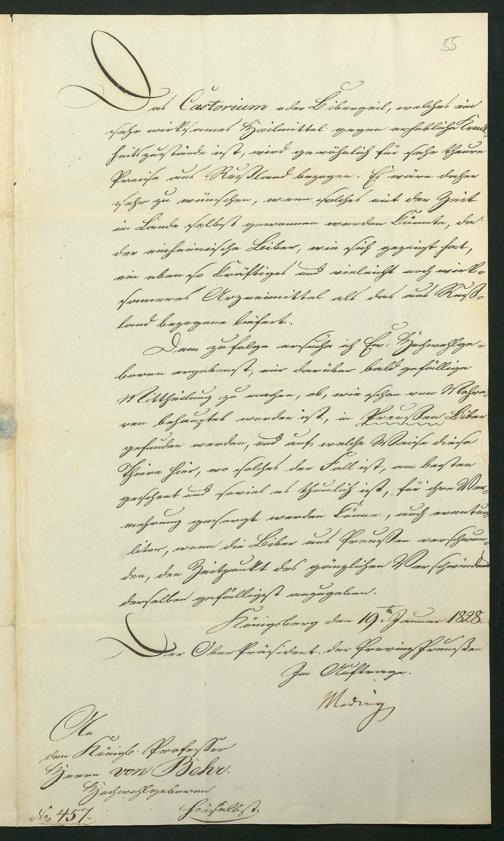 55
Das Castorium oder Bibergeil, welches ein
sehr wirksames Heilmittel gegen erhebliche Krank-
heitszustände ist, wird gewöhnlich für sehr theure
Preise aus Russland bezogen. Es wäre daher
sehr zu wünschen, wenn solches mit der Zeit
im Lande selbst gewonnen werden könnte, da
der einheimische Biber, wie sich gezeigt hat,
ein eben so kräftiges und vieleicht noch wirk-
sameres Arzneimittel als das aus Russ-
land bezogene liefert.
Dem zufolge ersuche ich Ew: Hochwohlge-
boren ergebenst, mir darüber bald gefällige
Mittheilung zu machen, ob, wie schon von Mehre-
ren behauptet worden ist, in Preussen Biber
gefunden werden, und auf welche Weise diese
Thiere hier, wo solches der Fall ist, am besten
geschont und soviel es thunlich ist, für ihre Ver-
mehrung gesorgt werden könne, auch eventua-
liter, wenn die Biber aus Preussen verschwun-
den, den Zeitpunkt des gänzlichen Verschwindens
derselben gefälligst anzugeben.
Königsberg den 19ten Januar 1828.
Der OberPräsident der Provinz Preussen
Im Auftrage.
Meding
An
den Königl. Professor
Herrn von Behr.
Hochwohlgeboren
No 457. hieselbst